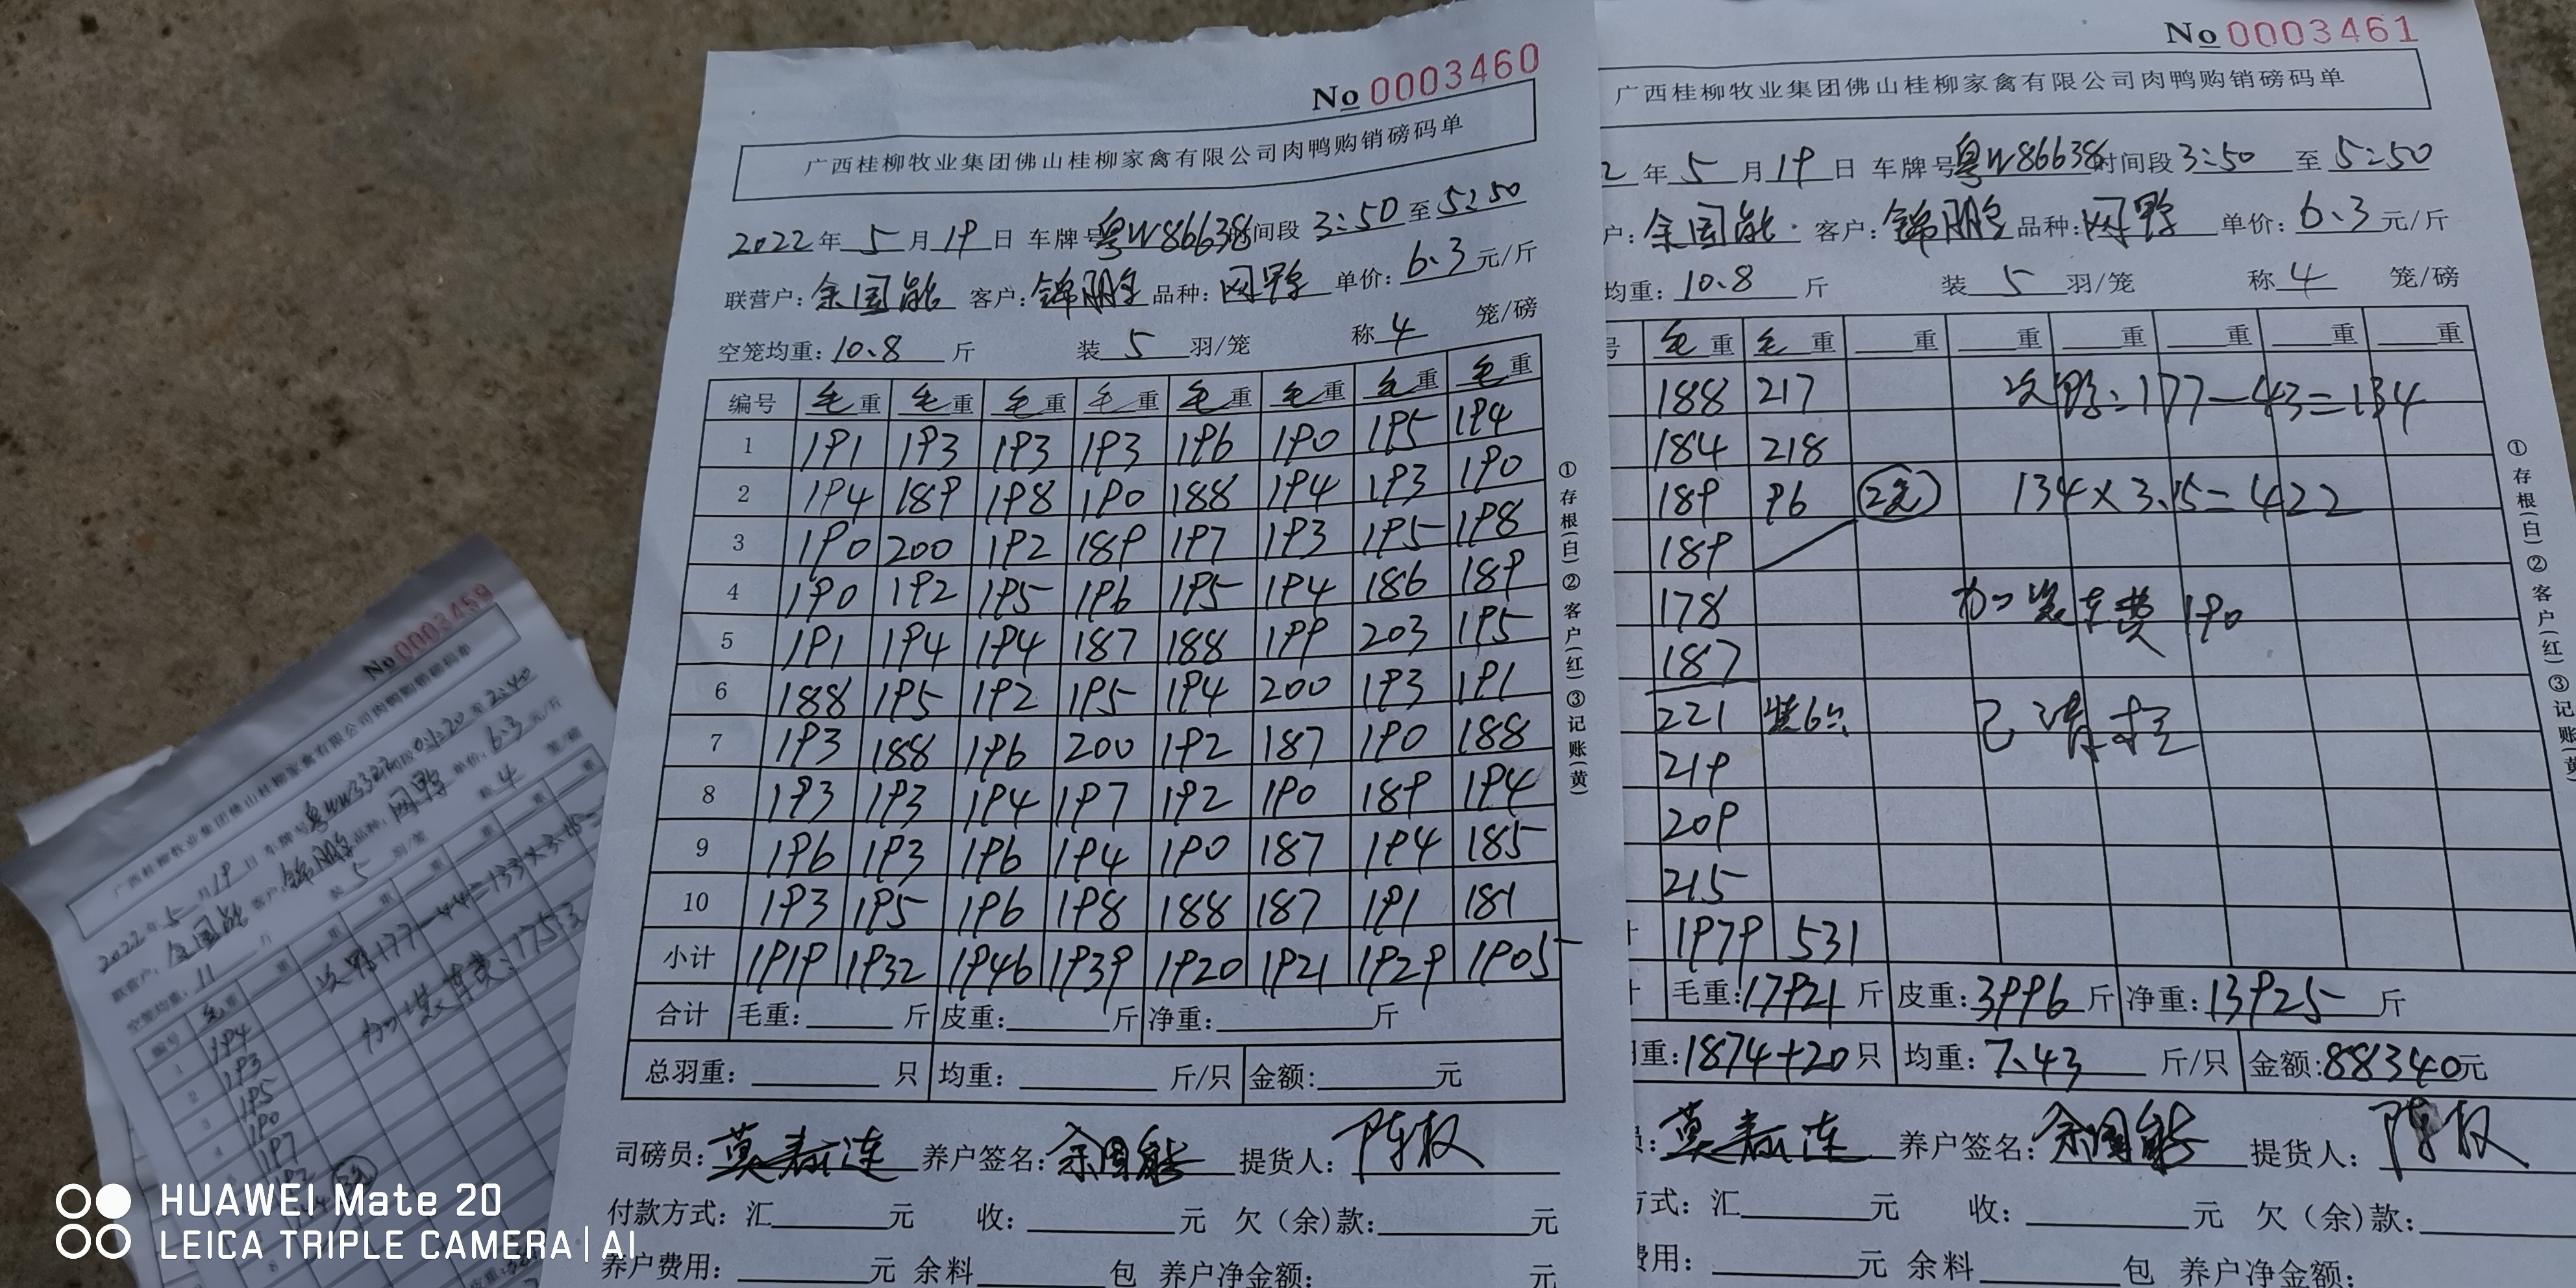 No 0003460
广西桂柳牧业集团佛山桂柳家禽有限公司肉鸭购销磅码单
2022 年 5 月 19 日 车牌号 粤W86638 时间段 3:50 至 5:50
联营户: 余国能 客户: 锦鹏 品种: 网鸭 单价: 6.3 元/斤
空笼均重: 10.8 斤 装 5 羽/笼 称 4 笼/磅
编号 毛重 毛重 毛重 毛重 毛重 毛重 毛重 毛重
1 191 193 193 193 196 190 195 194
2 194 189 198 190 188 194 193 190
3 190 200 192 189 197 193 195 198
4 190 192 195 196 195 194 186 189
5 191 194 194 187 188 199 203 195
6 188 195 192 195 194 200 193 191
7 193 188 196 200 192 187 190 188
8 193 193 194 197 192 190 189 194
9 196 193 196 194 190 187 194 185
10 193 195 196 198 188 187 191 181
小计 1919 1932 1946 1939 1920 1921 1929 1905
合计 毛重: 斤 皮重: 斤 净重: 斤
总羽重: 只 均重: 斤/只 金额: 元
司磅员: 养户签名: 余国能 提货人: 陈权
付款方式: 汇 元 收: 元 欠(余)款: 元
养户费用: 元 余料 包 养户净金额: 元
①存根(白)②客户(红)③记账(黄)
No 0003461
广西桂柳牧业集团佛山桂柳家禽有限公司肉鸭购销磅码单
2 年 5 月 19 日 车牌号 粤W86638 时间段 3:50 至 5:50
户: 余国能 客户: 锦鹏 品种: 网鸭 单价: 6.3 元/斤
均重: 10.8 斤 装 5 羽/笼 称 4 笼/磅
号 毛重 毛重 重 重 重 重 重 重
188 217 次鸭: 177-43=134
184 218
189 96 134×3.15=422
189
178 加装车费 190
187
221 装6只 已清栏
219
209
215
1979 531
毛重: 17921 斤 皮重: 3996 斤 净重: 13925 斤
重: 1874+20 只 均重: 7.43 斤/只 金额: 88340 元
员: 养户签名: 余国能 提货人: 陈权
方式: 汇 元 收: 元 欠(余)款:
费用: 元 余料 包 养户净金额:
①存根(白)②客户(红)③记账(黄
No 0003459
广西桂柳牧业集团佛山桂柳家禽有限公司肉鸭购销磅码单
2022 年 5 月 19 日 车牌号 时间段 至 2:40
联营户: 余国能 客户: 锦鹏 品种: 网鸭 单价: 6.3 元/斤
空笼均重: 11 斤 装 5 羽/笼 称 4 笼/磅
编号 毛重 重 重 重 重 重 重
1 194 次鸭 177-44=133×3.15=
2 193
3 195 加装车费:
4 190
197
HUAWEI Mate 20
LEICA TRIPLE CAMERA | AI